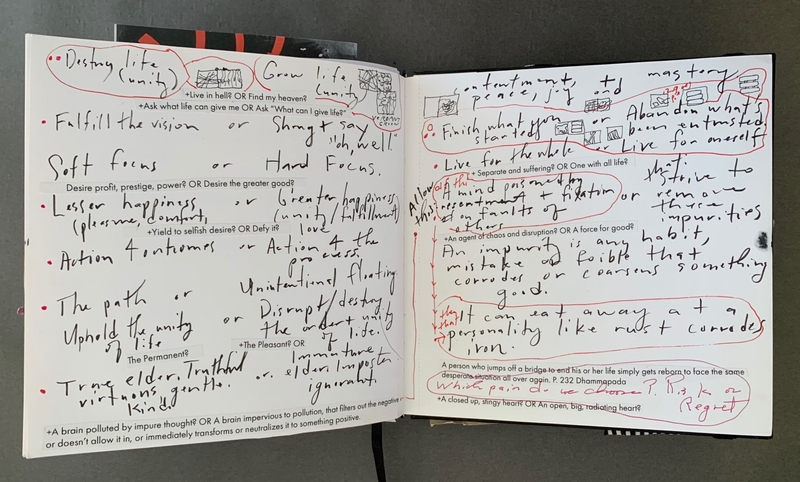 Destroy life
(unity)
Grow life
(unity
+Live in hell? OR Find my heaven?
+Ask what life can give me OR Ask "What can I give life?"
Fulfill the vision or Shrug + say
"oh, well."
Soft focus or Hard Focus.
Desire profit, prestige, power? OR Desire the greater good?
Lesser happiness or Greater happiness
(pleasure, comfort, (unity/fulfillment)
love
+Yield to selfish desire? OR Defy it?
Action 4 outcomes or Action 4 the
process.
The path or Unintentional floating.
Uphold the unity or Disrupt/destroy
of life the order + unity
of life.
The Permanent? +The Pleasant? OR
True elder, Truthful or Immature
virtuous, gentle. elder, Imposter
Kind. ignorant.
+A brain polluted by impure thought? OR A brain impervious to pollution, that filters out the negative
or doesn't allow it in, or immediately transforms or neutralizes it to something positive.
contentment, + mastery
peace, joy and
Finish what you or Abandon what's
started been entrusted.
Live for the whole or Live for oneself
+ Separate and suffering? OR One with all life?
Allow
this
A mind poisoned by
resentment + fixation or Strive to
on faults of remove
others these
impurities
+An agent of chaos and disruption? OR A force for good?
An impurity is any habit,
mistake or foible that
corrodes or coarsens something
good.
It can eat away at a
personality like rust corrodes
iron.
A person who jumps off a bridge to end his or her life simply gets reborn to face the same
desperate situation all over again. P. 232 Dhammapada
Which pain do we choose? Risk or
Regret
+A closed up, stingy heart? OR An open, big, radiating heart?